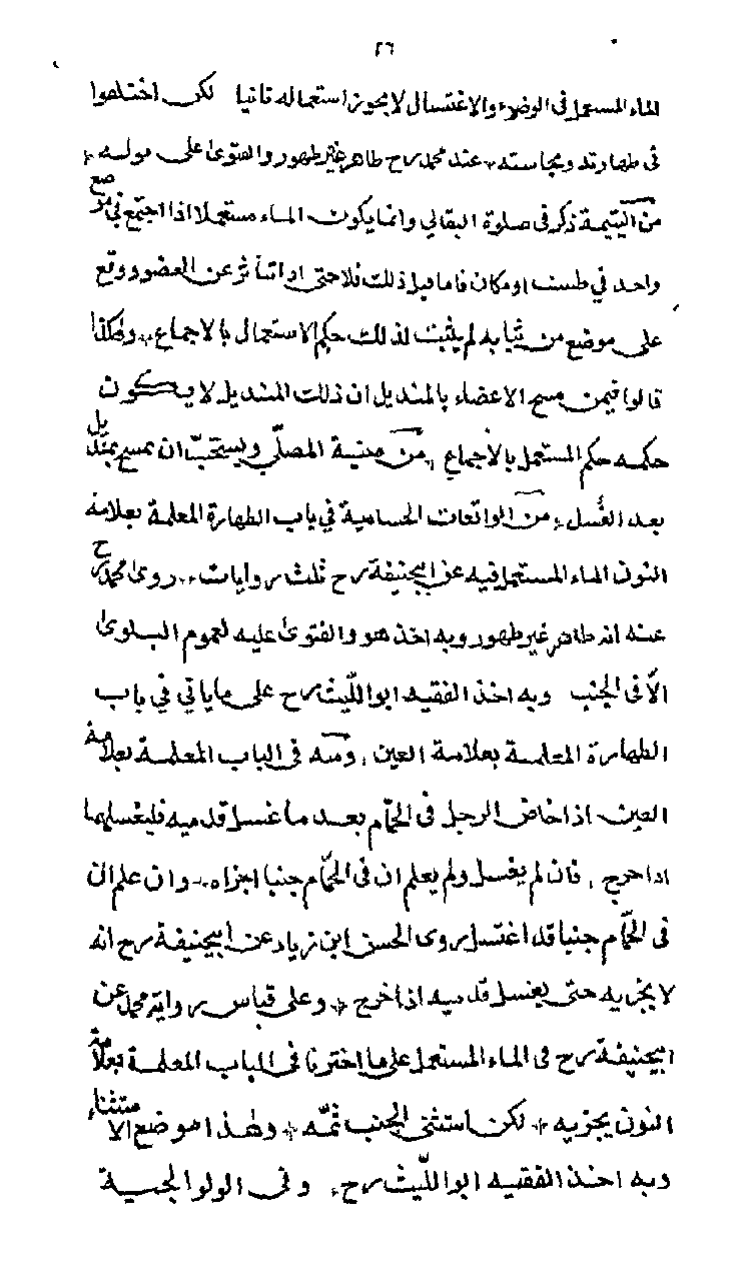 ٢٦
الماء المستعمل فى الوضوء والاغتسال لا يجوز استعماله ثانيا لكن اختلفوا
فى طهارته ونجاسته عند محمد رح طاهر غير طهور والفتوى على قوله
من اليتيمة ذكر فى صلوة البقالي وانما يكون الماء مستعملا اذا اجتمع في موضع
واحد في طست او مكان فاما قبل ذلك فلا حتى اذا تناثر عن العضو ووقع
على موضع من ثيابه لم يثبت لذلك حكم الاستعمال بالاجماع وهكذا
قالوا فيمن مسح الاعضاء بالمنديل ان ذلك المنديل لا يكون
حكمه حكم المستعمل بالاجماع من منية المصلّي ويستحبّ ان يمسح بمنديل
بعد الغُسل من الواقعات الحسامية في باب الطهارة المعلمة بعلامة
النون الماء المستعمل فيه عن ابيحنيفة رح ثلث روايات روى محمد رح
عنه انه طاهر غير طهور وبه اخذ هو والفتوى عليه لعموم البلوى
الّا فى الجنب وبه اخذ الفقيه ابو اللّيث رح على ما ياتي في باب
الطهارة المعلمة بعلامة العين ومنه فى الباب المعلمة بعلامة
العين اذا خاض الرجل فى الحمّام بعد ما غسل قدميه فليغسلهما
اذا خرج فان لم يغسل ولم يعلم ان فى الحمّام جنبا اجزاه وان علم ان
فى الحمّام جنبا قد اغتسل روى الحسن ابن زياد عن ابيحنيفة رح انه
لا يجزيه حتى يغسل قدميه اذا خرج وعلى قياس رواية محمد عن
ابيحنيفة رح فى الماء المستعمل على ما اخترنا فى الباب المعلمة بعلامة
النون يجزيه لكن استثنى الجنب ثمّه وهذا موضع الاستثناء
وبه اخذ الفقيه ابو اللّيث رح وفى الولوالجية